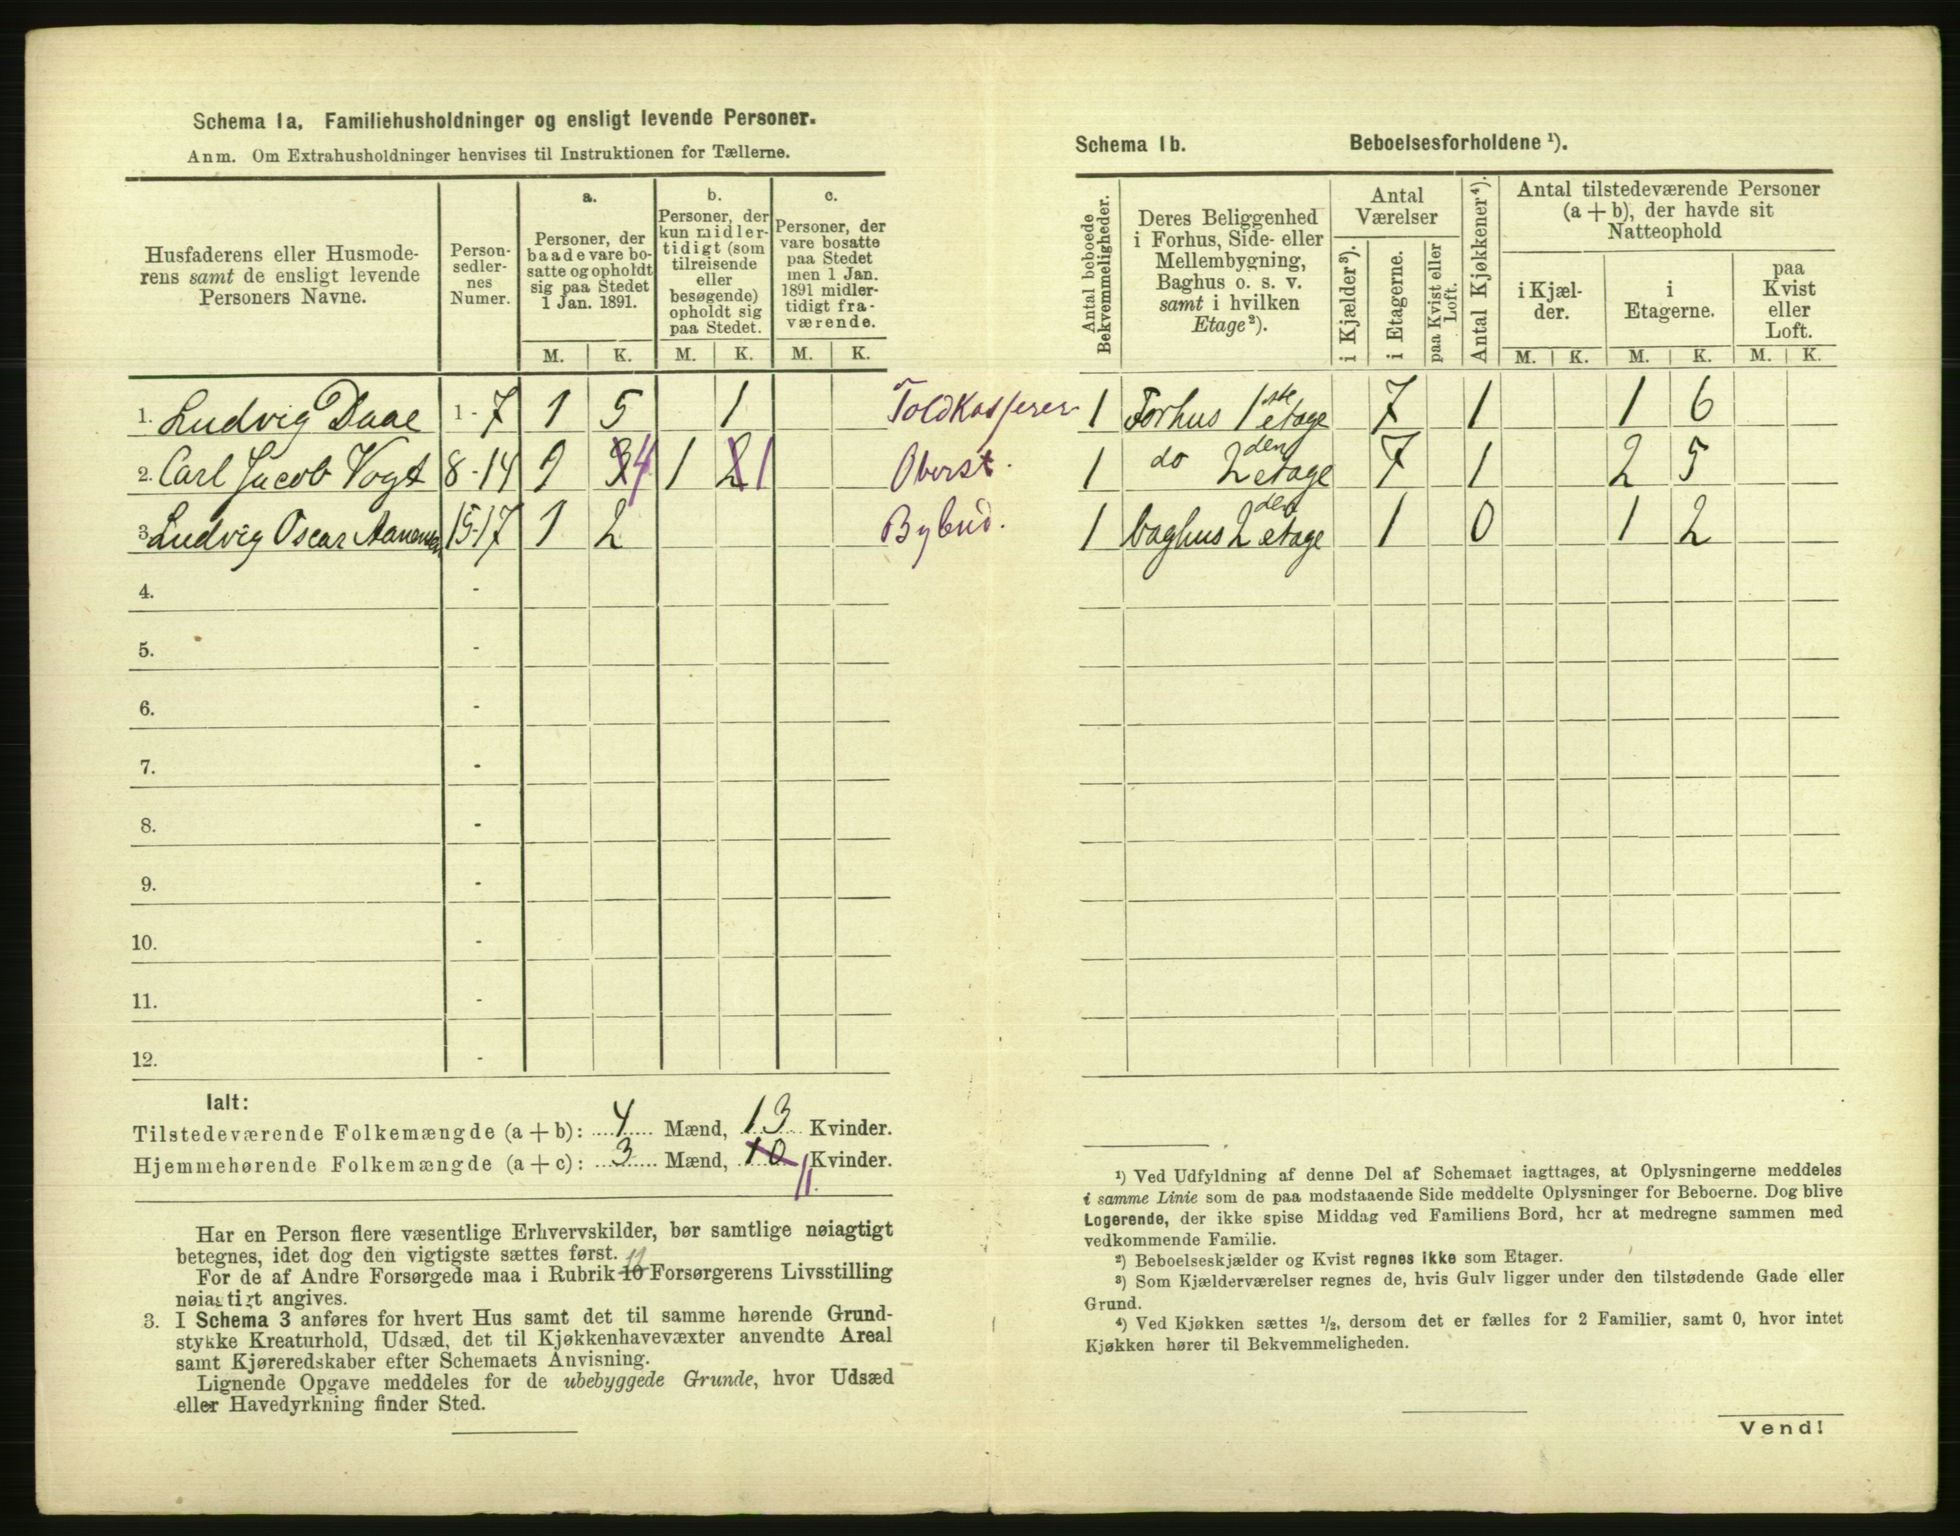 Schema 1a. Familiehusholdninger og ensligt levende Personer.
Anm. Om Extrahusholdninger henvises til Instruktionen for Tællerne.
Husfaderens eller Husmode-
rens samt de ensligt levende
Personers Navne.
Person-
sedler-
nes
Numer.
a.
Personer, der
baade vare bo-
satte og opholdt
sig paa Stedet
1 Jan. 1891.
b.
Personer, der
kun midler-
tidigt (som
tilreisende
eller
besøgende)
opholdt sig
paa Stedet.
c.
Personer, der
vare bosatte
paa Stedet
men 1 Jan.
1891 midler-
tidigt fra-
værende.
M. K. M. K. M. K.
1. Ludvig Daae 1 - 7 1 5 1 Toldkasserer
2. Carl Jacob Vogt 8 - 14 1 3 4 1 2 1 Oberst.
3. Ludvig Oscar 15-17 1 2 Bybud.
4. -
5. -
6. -
7. -
8. -
9. -
10. -
11. -
12. -
Ialt:
Tilstedeværende Folkemængde (a + b): 4 Mænd, 13 Kvinder.
Hjemmehørende Folkemængde (a + c): 3 Mænd, 10 11. Kvinder.
Har en Person flere væsentlige Erhvervskilder, bør samtlige nøiagtigt
betegnes, idet dog den vigtigste sættes først.
For de af Andre Forsørgede maa i Rubrik 10 Forsørgerens Livsstilling
nøiagtigt angives.
3. I Schema 3 anføres for hvert Hus samt det til samme hørende Grund-
stykke Kreaturhold, Udsæd, det til Kjøkkenhavevæxter anvendte Areal
samt Kjøreredskaber efter Schemaets Anvisning.
Lignende Opgave meddeles for de ubebyggede Grunde, hvor Udsæd
eller Havedyrkning finder Sted.
Schema 1b. Beboelsesforholdene ¹).
Antal beboede
Bekvemmeligheder.
Deres Beliggenhed
i Forhus, Side- eller
Mellembygning,
Baghus o. s. v.
samt i hvilken
Etage²).
Antal
Værelser
i Kjælder³).
i Etagerne.
paa Kvist eller
Loft.
Antal Kjøkkener⁴).
Antal tilstedeværende Personer
(a + b), der havde sit
Natteophold
i Kjæl-
der.
i
Etagerne.
paa
Kvist
eller
Loft.
M. K. M. K. M. K.
1 Forhus 1ste etage 7 1 1 6
1 do 2den etage 7 1 2 5
1 baghus 2den etage 1 0 1 2
¹) Ved Udfyldning af denne Del af Schemaet iagttages, at Oplysningerne meddeles
i samme Linie som de paa modstaaende Side meddelte Oplysninger for Beboerne. Dog blive
Logerende, der ikke spise Middag ved Familiens Bord, her at medregne sammen med
vedkommende Familie.
²) Beboelseskjælder og Kvist regnes ikke som Etager.
³) Som Kjælderværelser regnes de, hvis Gulv ligger under den tilstødende Gade eller
Grund.
⁴) Ved Kjøkken sættes ½, dersom det er fælles for 2 Familier, samt 0, hvor intet
Kjøkken hører til Bekvemmeligheden.
Vend!